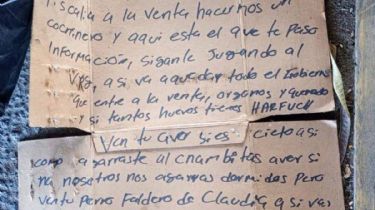 Fiscalia a la venta hacemos un
cocrinero y aqui esta el que te paso
Informacion, sigante Jugando al
Vrg, a si va aquedar todo el Gobierno
que entre a la venta, organos y quemado
y si tantos huevos tienes HARFUCH
Ven tu aver si es cieto a si
como agarraste al chambitas aver si
na nosotros nos agarras dormidos Pero
ventu Perro Faldero de Claudia, a si vas